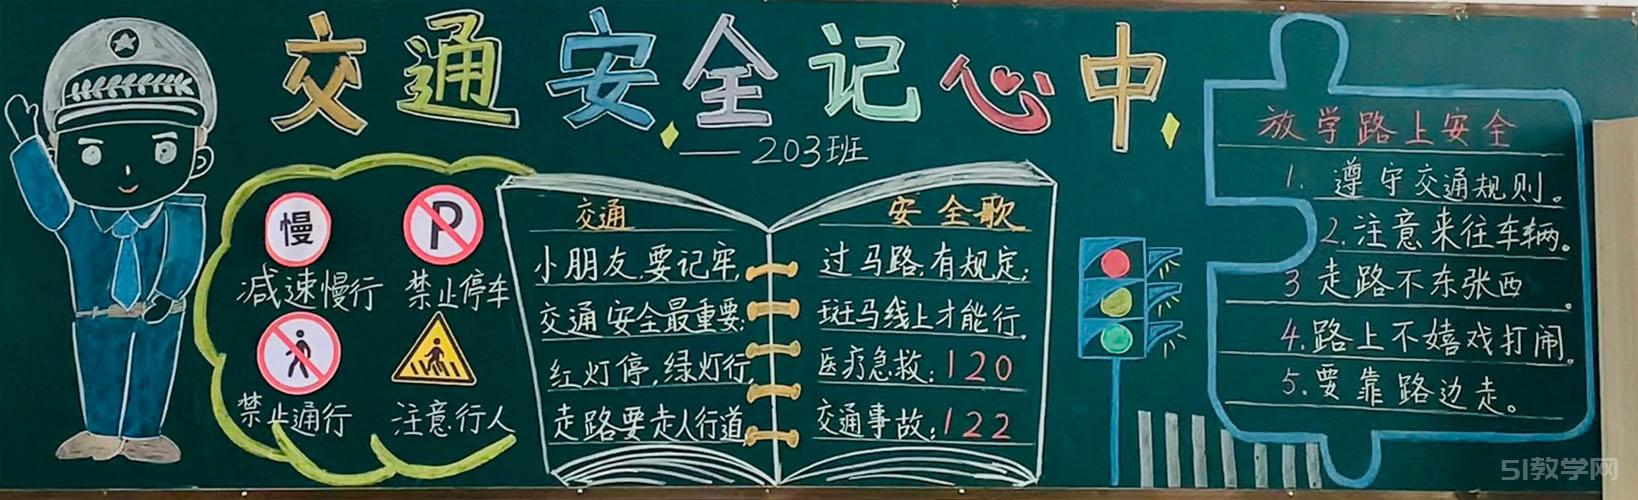 交通安全记心中
——203班
慢
减速慢行
P
禁止停车
禁止通行
注意行人
交通
小朋友,要记牢,
交通安全最重要;
红灯停,绿灯行,
走路要走人行道,
安全歌
过马路,有规定;
斑马线上才能行。
医疗急救:120
交通事故:122
放学路上安全
1. 遵守交通规则。
2.注意来往车辆。
3 走路不东张西 。
4.路上不嬉戏打闹。
5.要靠路边走。
51教学网